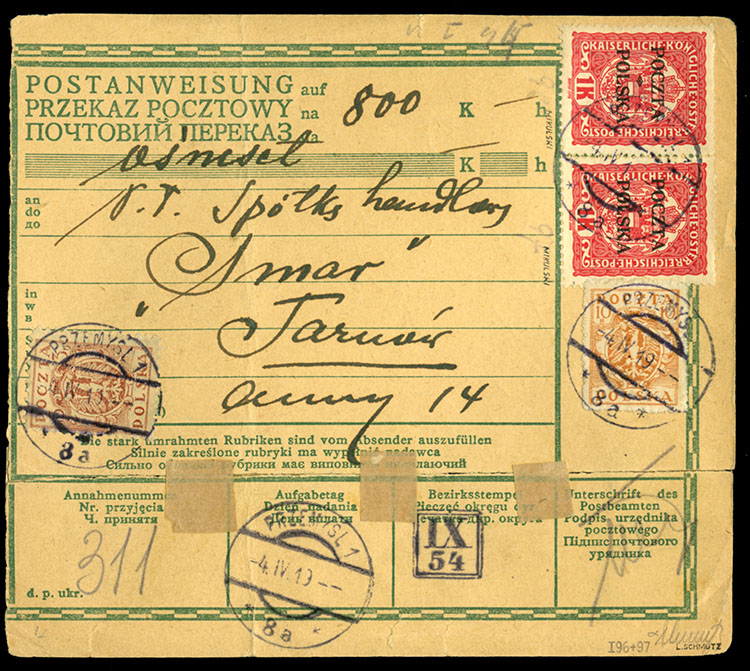 POSTANWEISUNG auf
PRZEKAZ POCZTOWY na 800 K — h
ПОЧТОВИЙ ПЕРЕКАЗ на
K — h
an
do
до
Spółka
"Smar"
in
w
в
Tarnów
Anny 14
KAISERLICHE·KÖNIGLICHE·ÖSTERREICHISCHE·POST
1K
POCZTA
POLSKA
MIKULSKI
KAISERLICHE·KÖNIGLICHE·ÖSTERREICHISCHE·POST
1K
POCZTA
POLSKA
MIKULSKI
POCZTA
10 10
POLSKA
PRZEMYŚL 1
-4.IV.19--
* 8a *
POCZTA
POLSKA
PRZEMYŚL 1
-4.IV.19
8a
Die stark umrahmten Rubriken sind vom Absender auszufüllen
Silnie zakreślone rubryki ma wypełnić nadawca
Сильно рубрики має виповнити
Annahmenummer
Nr. przyjęcia
Ч. принятя
311
d. p. ukr.
Aufgabetag
Dzień nadania
День надани
PRZEMYŚL 1
-4.IV.19--
* 8a *
Bezirksstempel
Pieczęć okręgu
округа
IX
54
Unterschrift des
Postbeamten
Podpis urzędnika
pocztowego
Підпис почтового
урядника
I96+97
L.SCHMUTZ